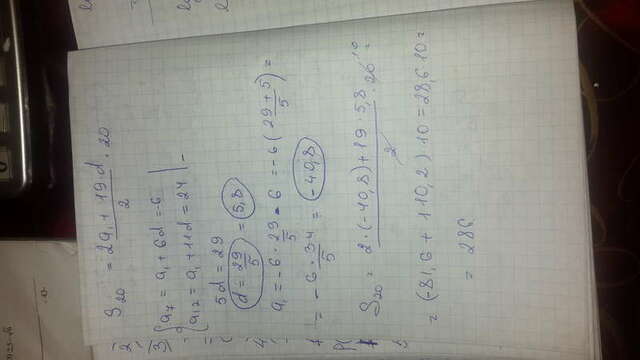 S₂₀ = (2a₁ + 19·d)/2 · 20
{a₇ = a₁ + 6d = -6
{a₁₂ = a₁ + 11d = 24 | -
5d = 29
d = 29/5 = 5,8
a₁ = -6 · 29/5 - 6 = -6 (29 + 5)/5) =
= -6 · 34/5 = -40,8
S₂₀ = (2 · (-40,8) + 19 · 5,8)/2 · 20 10 =
= (-81,6 + 110,2) · 10 = 28,6 · 10 =
= 286